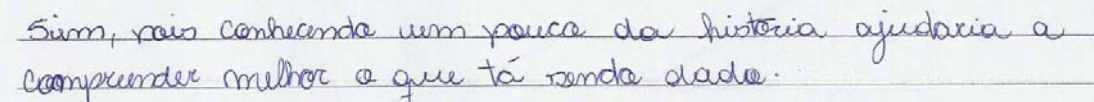 Sim, pois conhecendo um pouco da história ajudaria a
compreender melhor o que tá sendo dado.